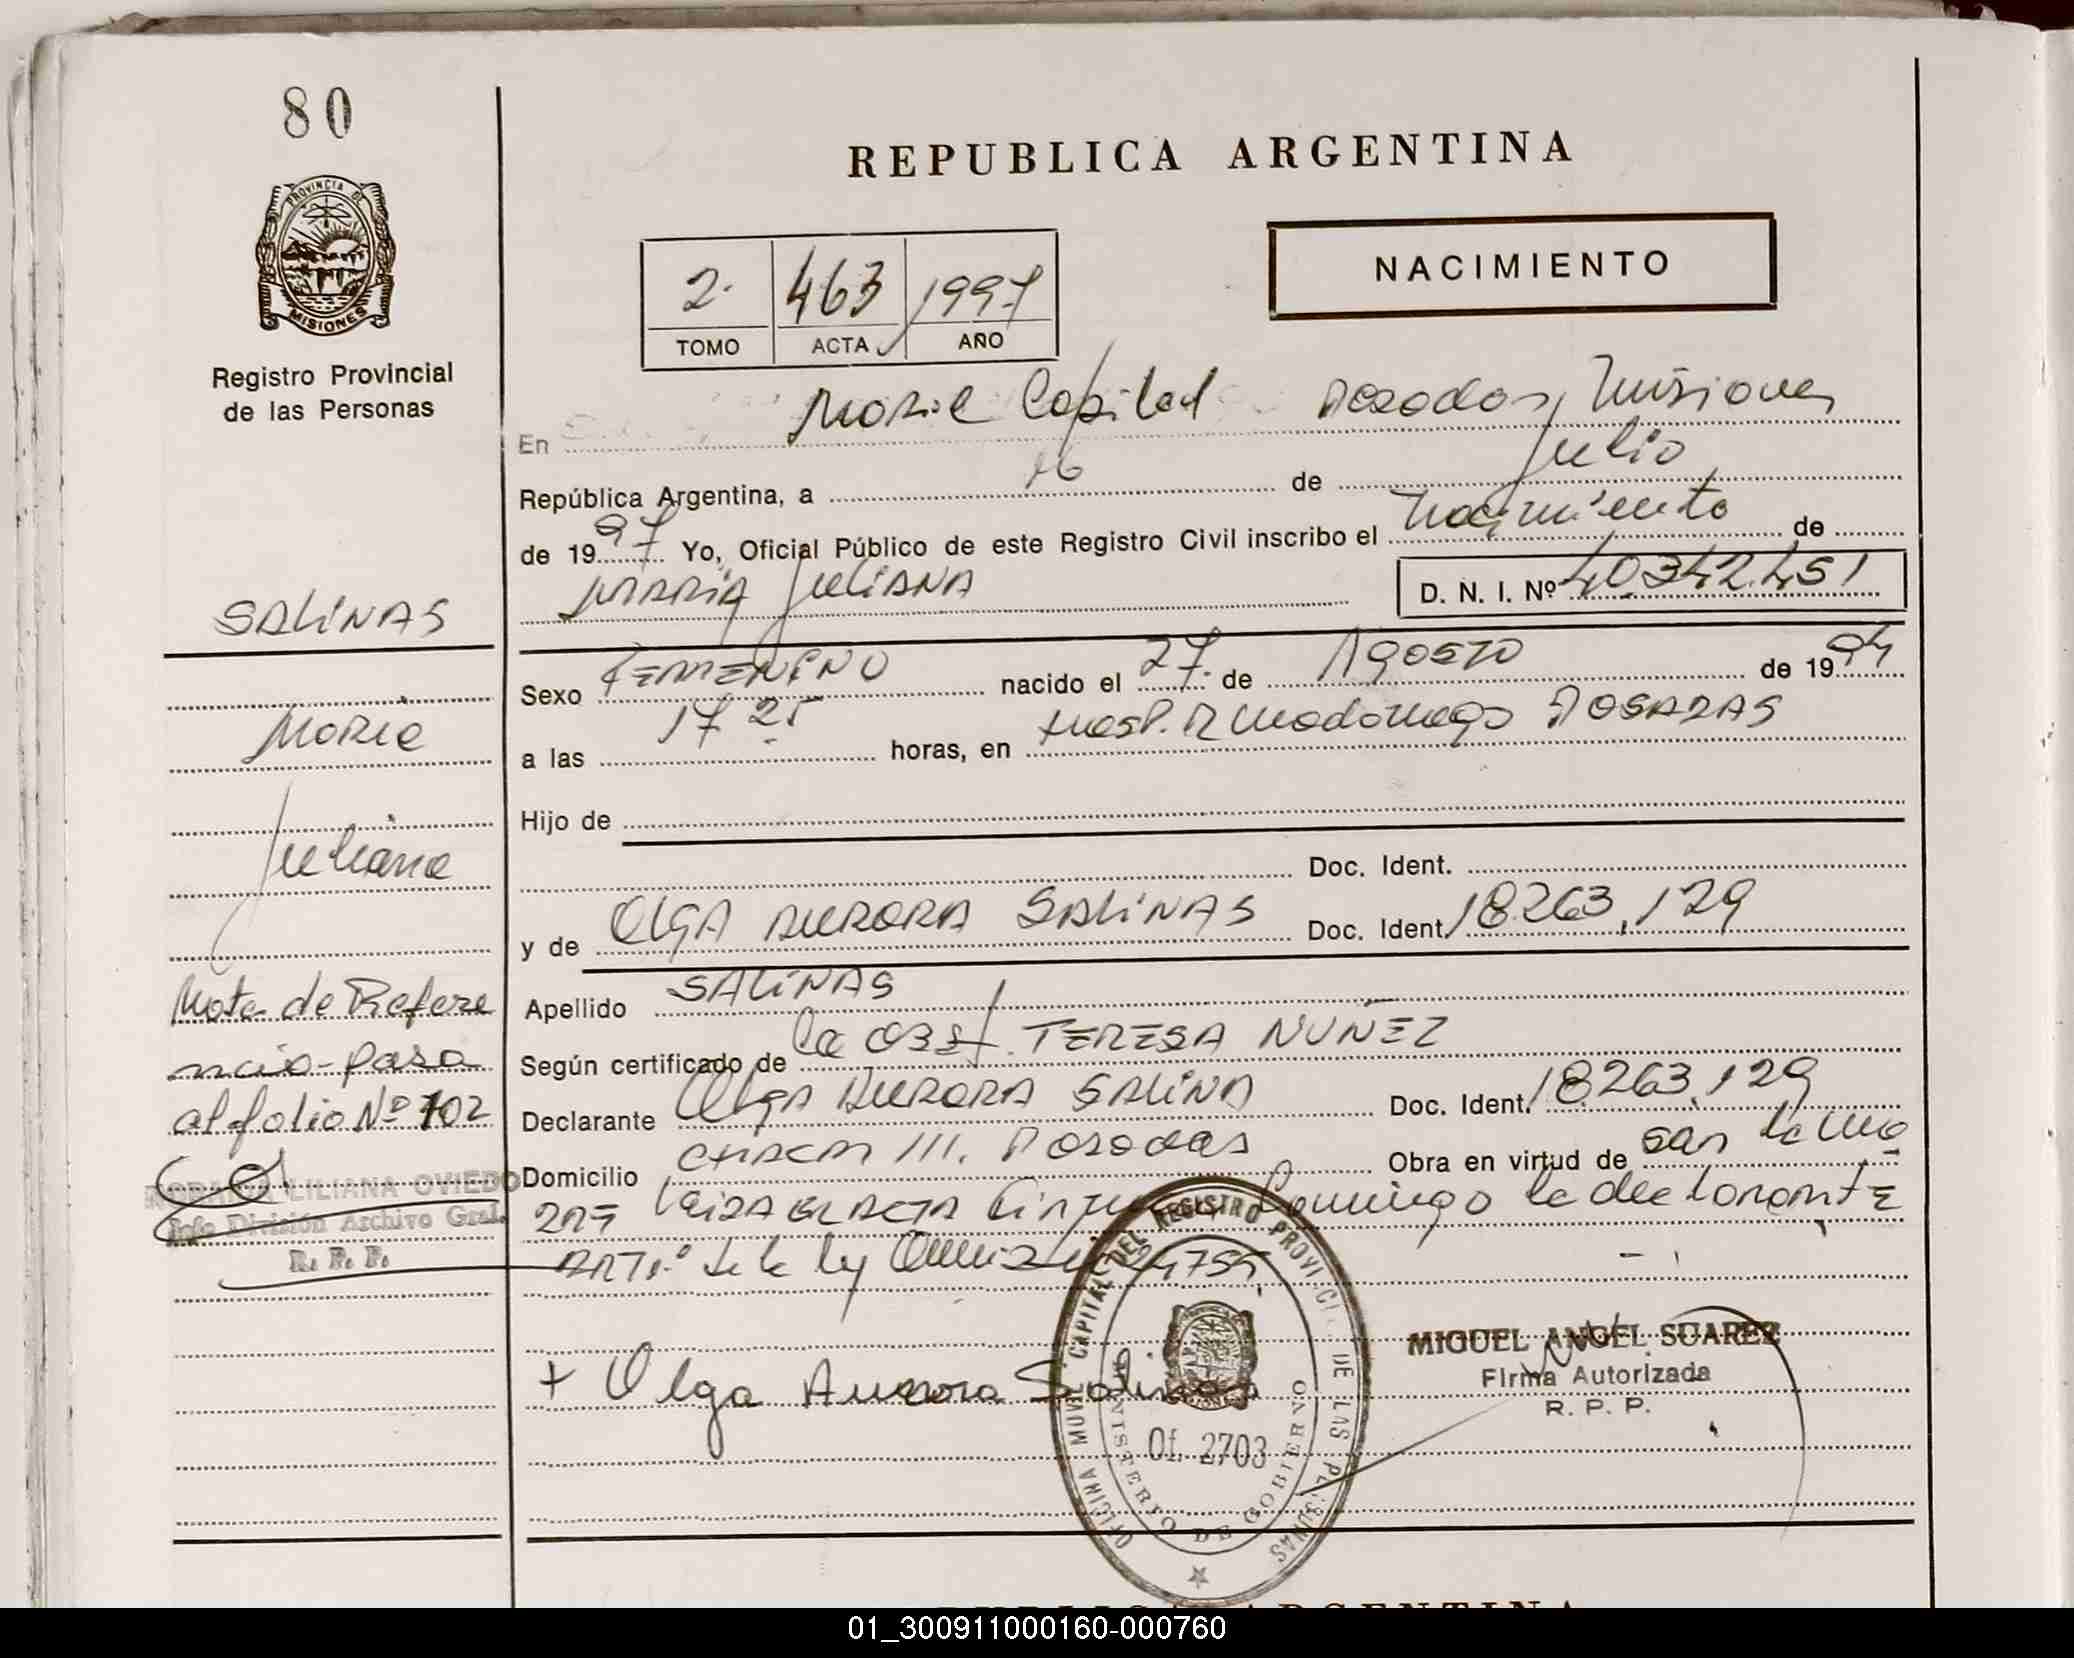 80
REPUBLICA ARGENTINA
PROVINCIA DE
MISIONES
Registro Provincial
de las Personas
2 463 1997
TOMO ACTA AÑO
NACIMIENTO
En Movil Capital Posadas, Misiones
República Argentina, a 16 de Julio
de 1997 Yo, Oficial Público de este Registro Civil inscribo el Nacimiento de
MARIA JULIANA D. N. I. Nº 40.342.451
SALINAS
Maria
Juliana
Sexo FEMENINO nacido el 27 de AGOSTO de 1994
a las 17 25 horas, en Hosp. R Madariaga POSADAS
Hijo de
Doc. Ident.
y de OLGA AURORA SALINAS Doc. Ident. 18.263.129
Apellido SALINAS
Según certificado de la OBST. TERESA NUÑEZ
Declarante Olga AURORA SALINA Doc. Ident. 18.263.129
Domicilio CHACRA 111. Posadas Obra en virtud de
la declarante
ley 24755
Nota de Refere
ncia-pasa
al folio Nº 102
LILIANA OVIEDO
Jefe División Archivo Gral.
R. P. P.
+ Olga Aurora Salinas
OFICINA MOVIL CAPITAL DEL REGISTRO PROVINCIAL DE LAS PERSONAS
MINISTERIO DE GOBIERNO
Of. 2703
MIGUEL ANGEL SUAREZ
Firma Autorizada
R. P. P.
REPUBLICA ARGENTINA
01_300911000160-000760